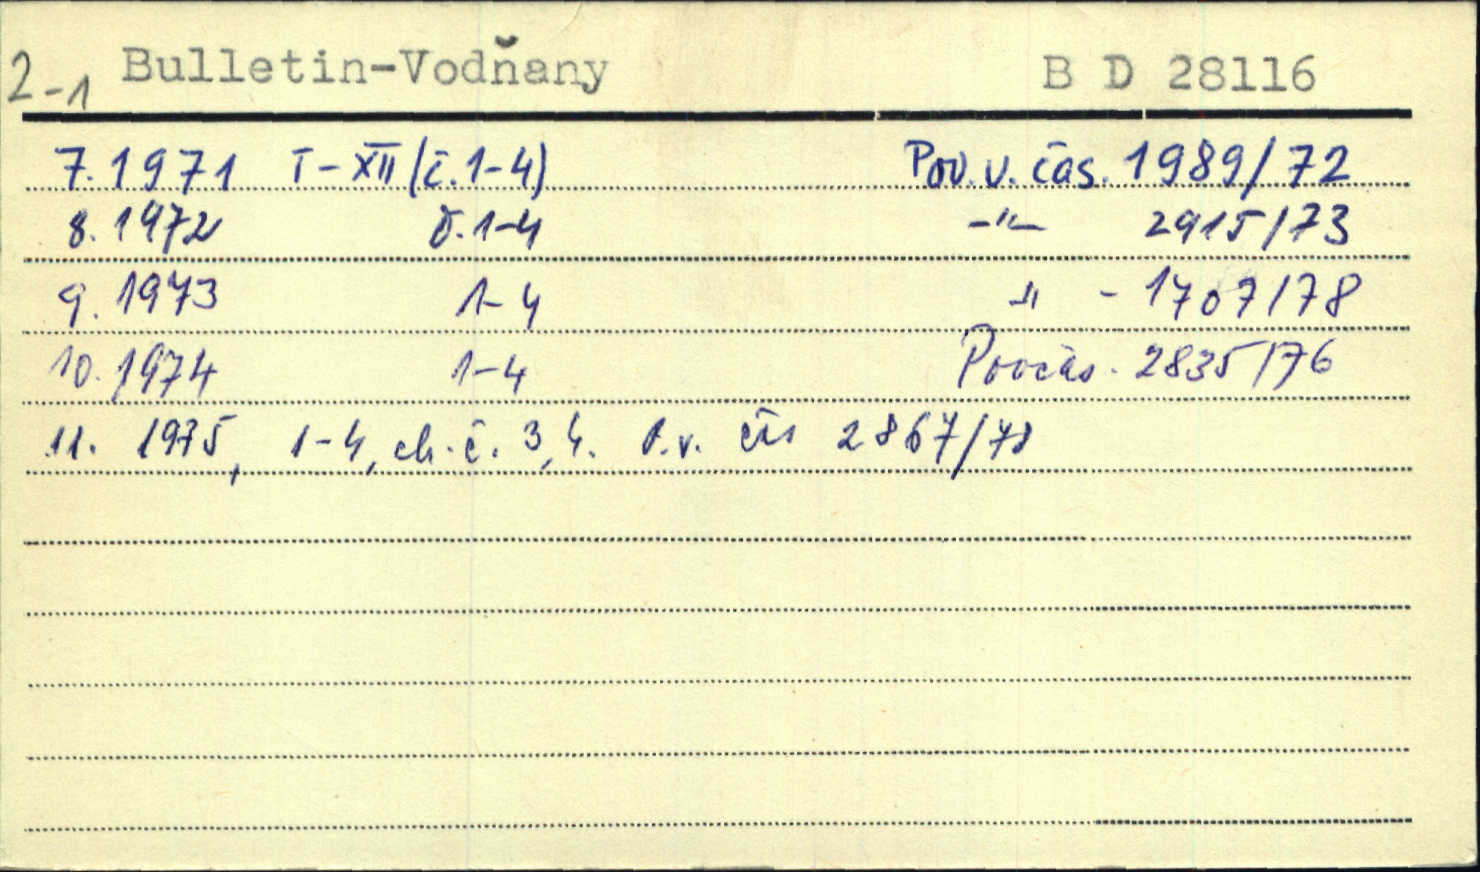 2-1 Bulletin-Vodňany B D 28116
7. 1971 I-XII (č. 1-4) Pov. v. čas. 1989/72
8. 1972 č. 1-4 -"- 2915/73
9. 1973 1-4 " - 1707/78
10. 1974 1-4 Povčas. 2835/76
11. 1975, 1-4, ch. č. 3, 4. P. v. čas 2867/78